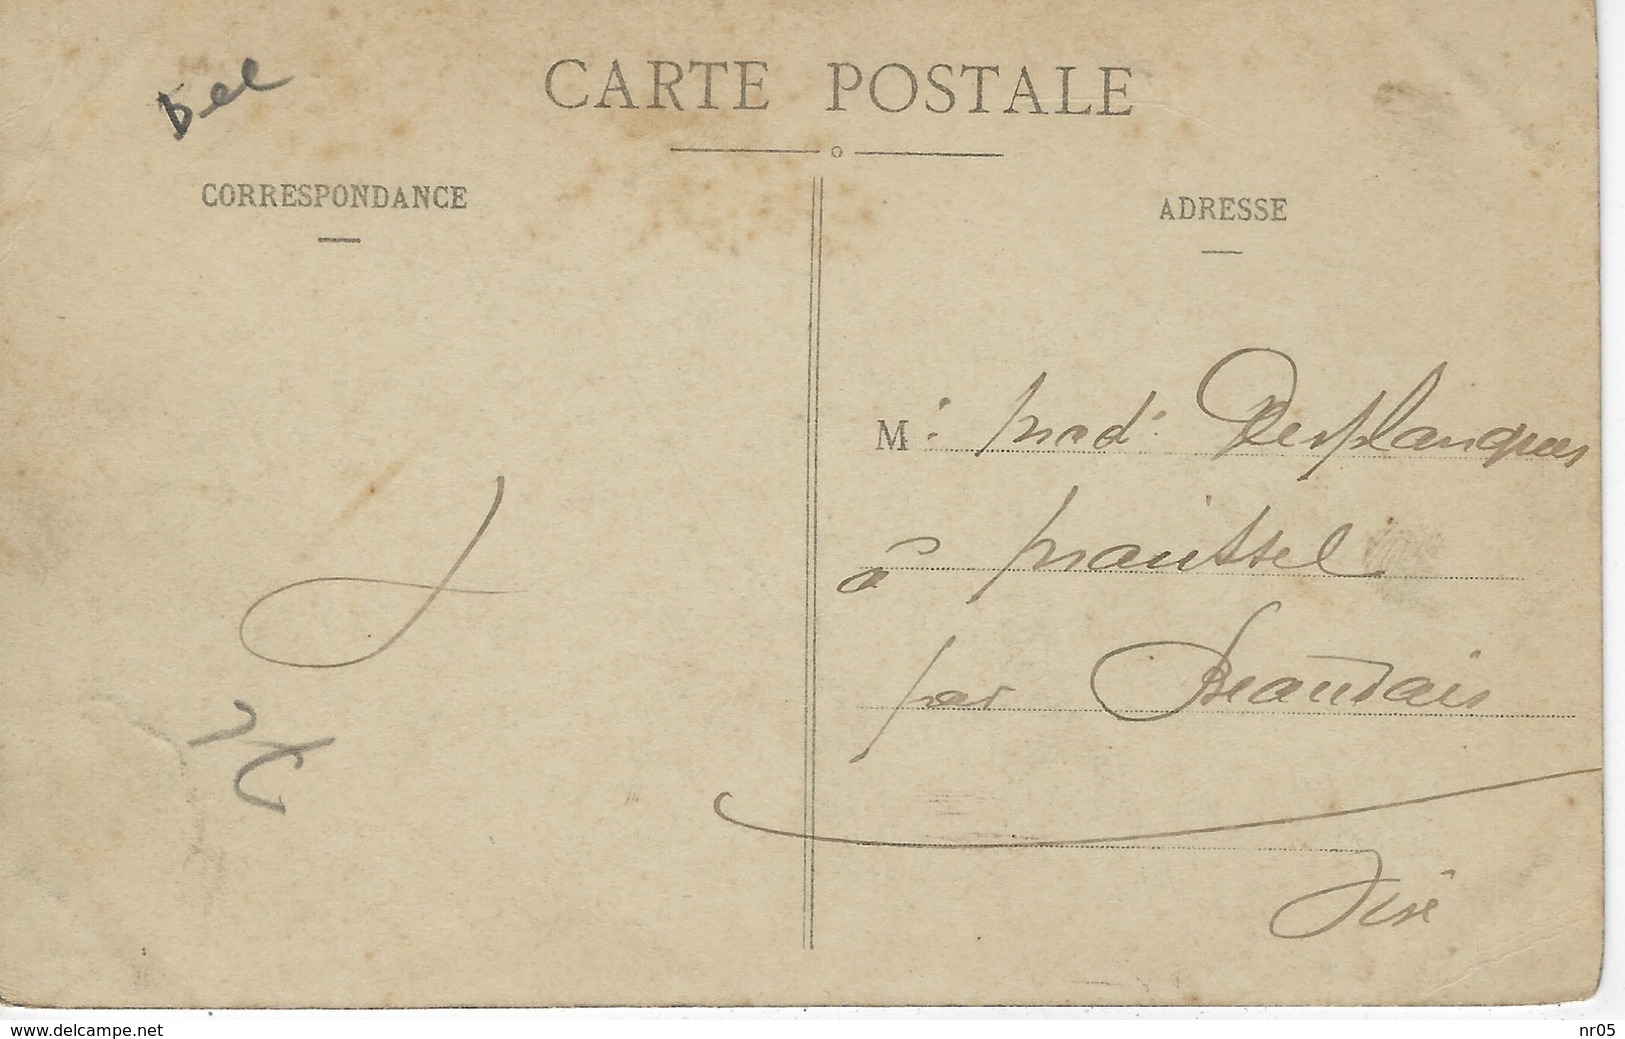 Bel
CARTE POSTALE
CORRESPONDANCE
ADRESSE
M. Mad. Desplanques
à Maissel
par Beauvais
Oise
delcampe.net
nr05